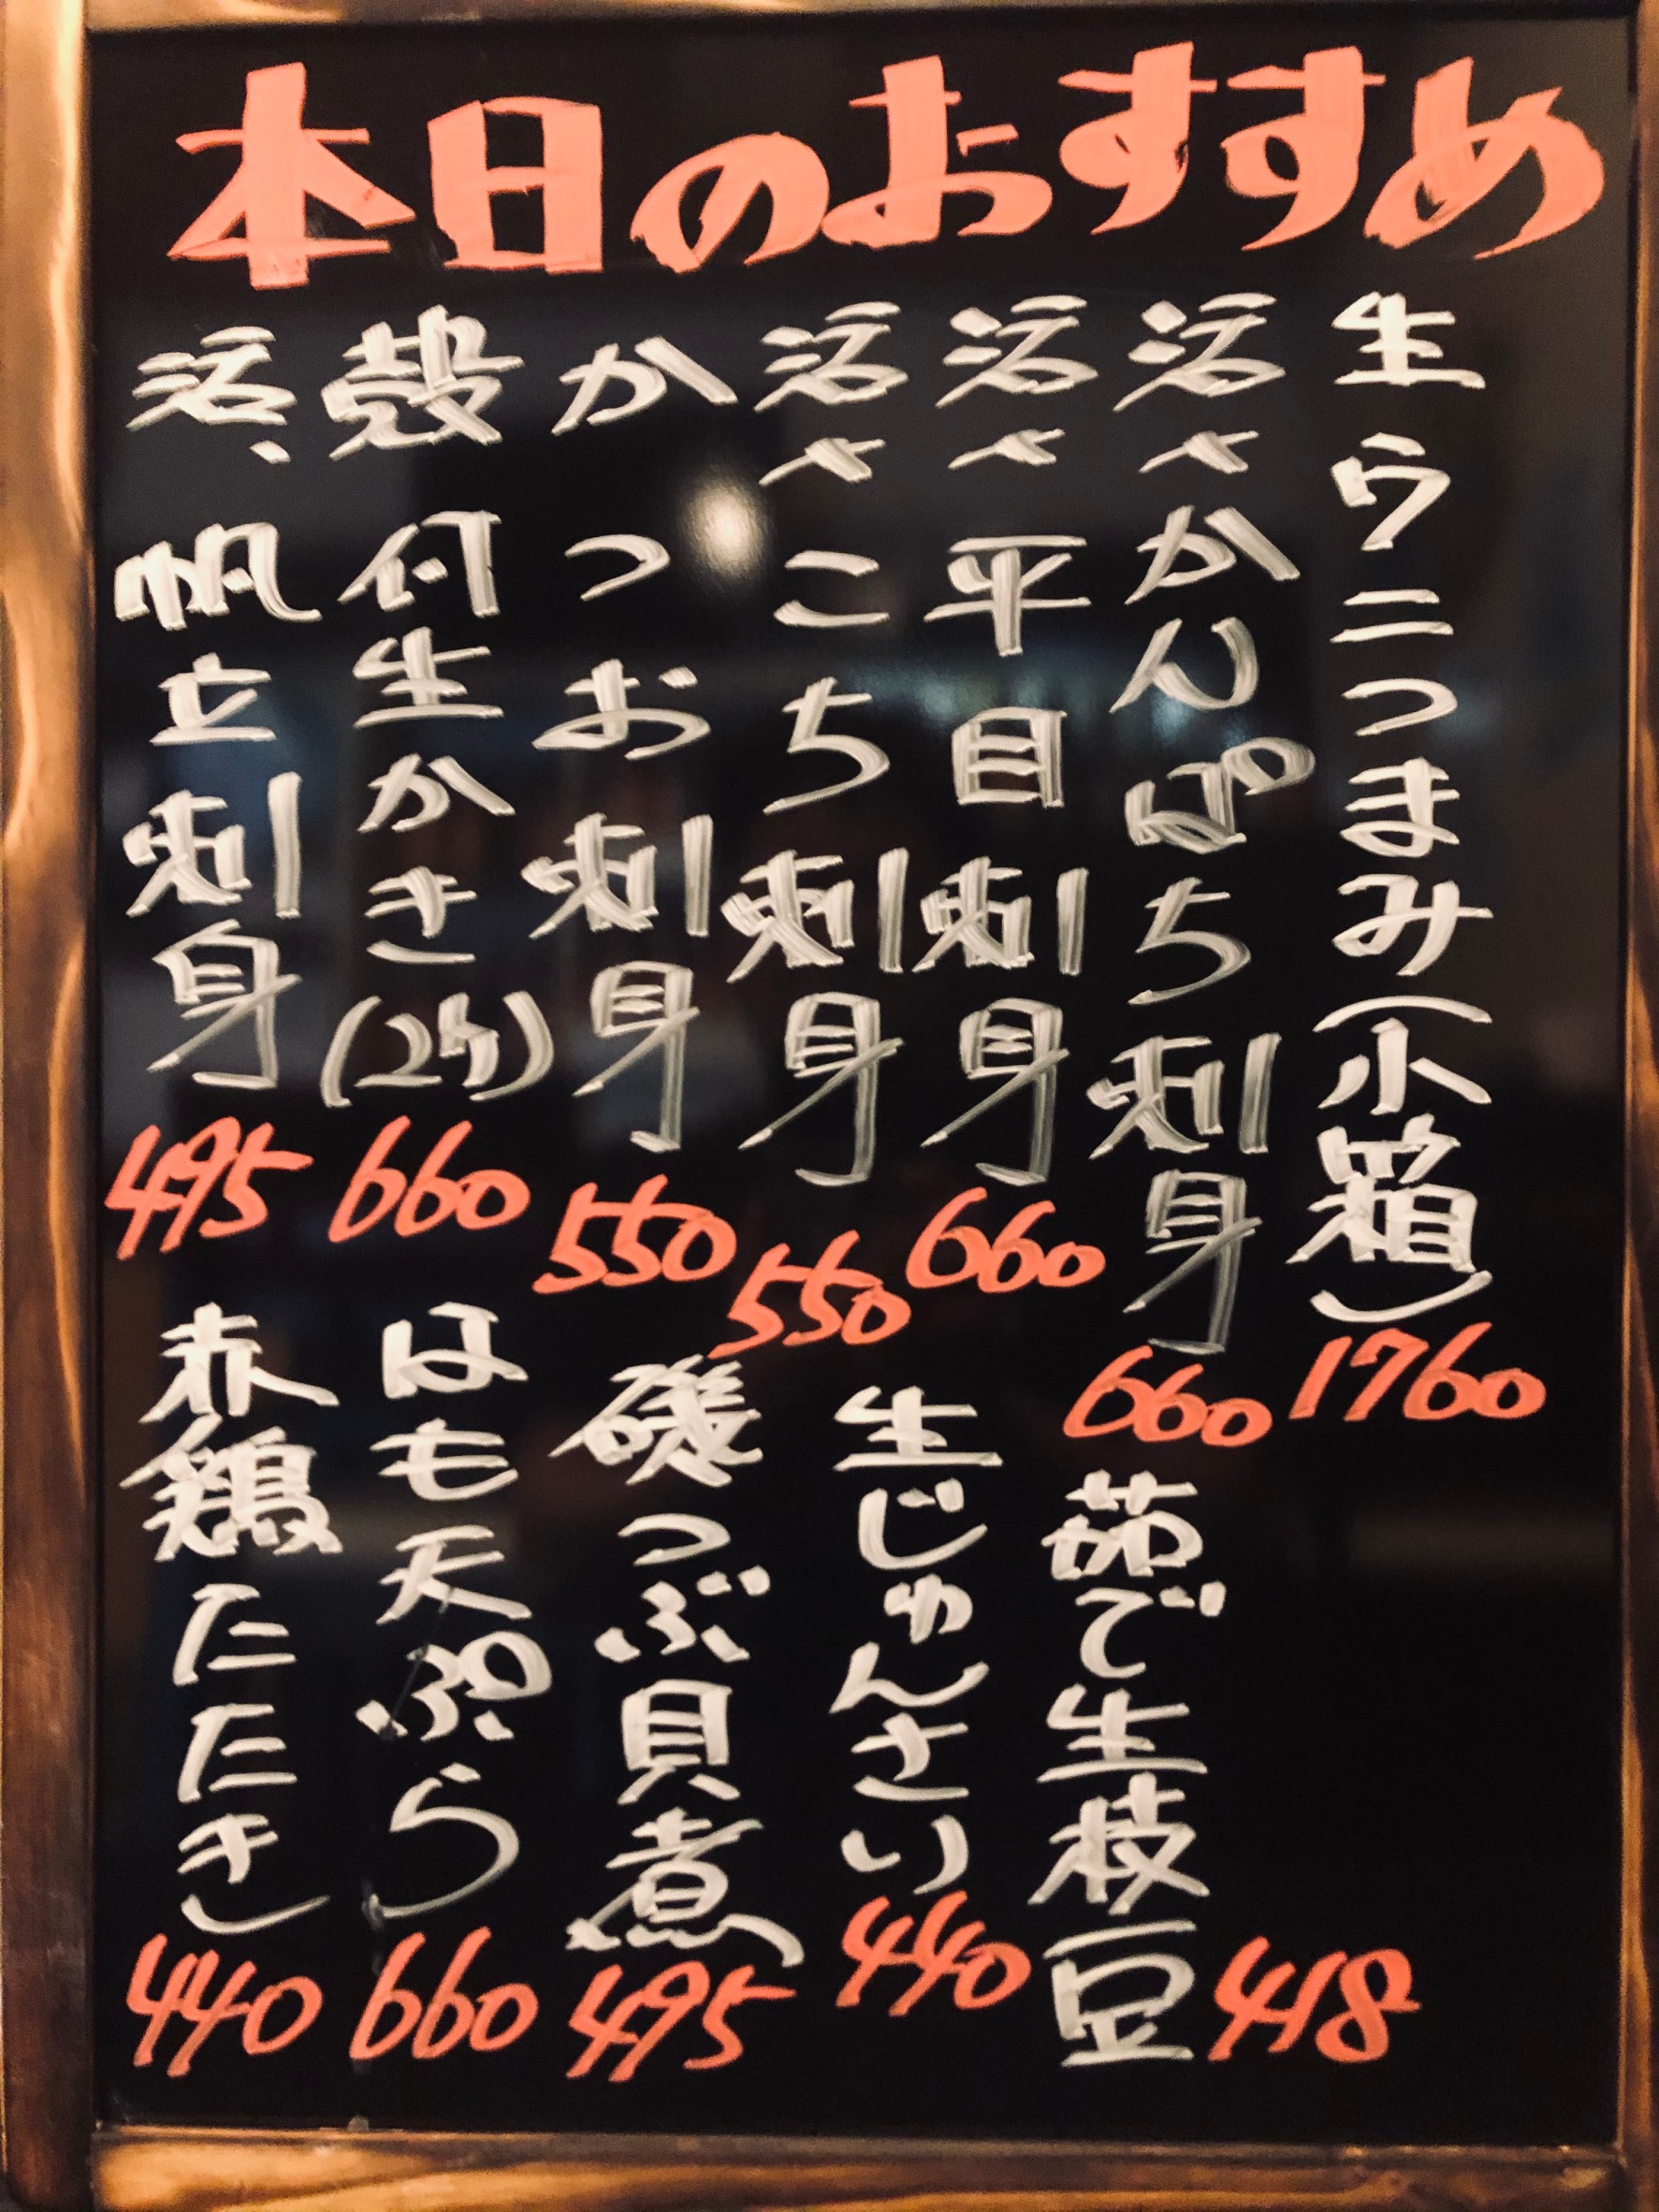 本日のおすすめ
生ウニつまみ(小箱) 1760
活〆かんぱち刺身 660
活〆平目刺身 660
活〆こち刺身 550
かつお刺身 550
殻付生かき(2ヶ) 660
活、帆立刺身 495
茹で生枝豆 418
生じゅんさい 440
磯つぶ貝煮 495
はも天ぷら 660
赤鶏たたき 440